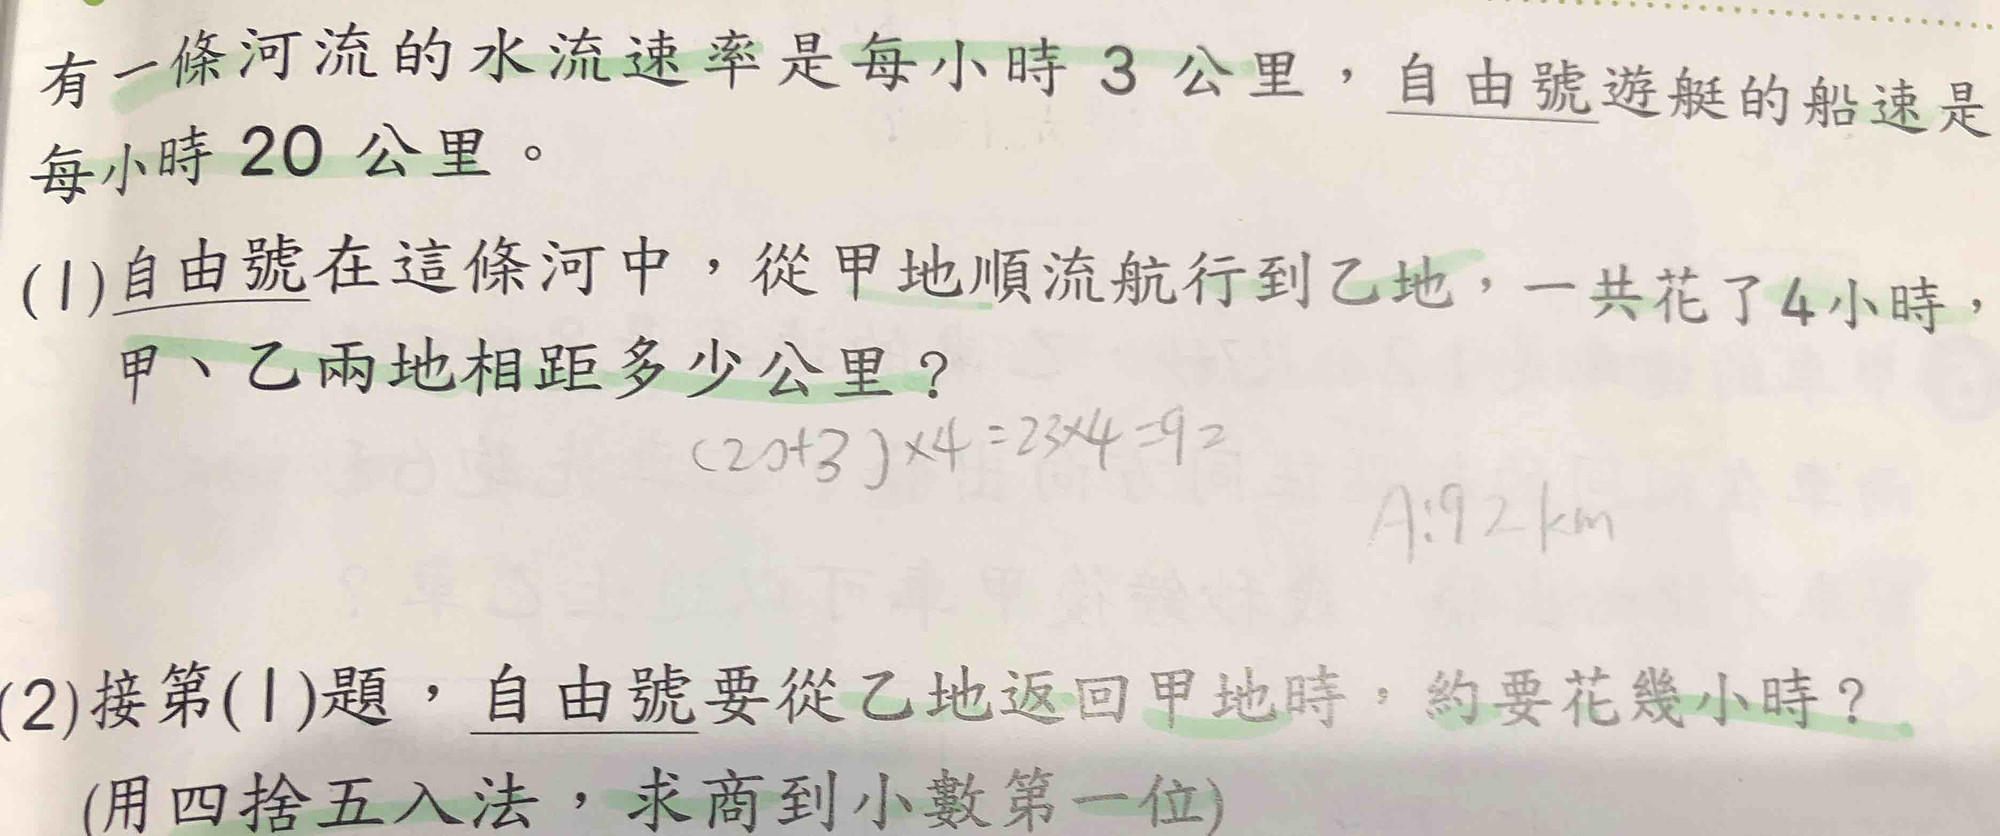 有一條河流的水流速率是每小時 3 公里，自由號遊艇的船速是
每小時 20 公里。
(1)自由號在這條河中，從甲地順流航行到乙地，一共花了4小時，
甲、乙兩地相距多少公里？
(20+3)×4=23×4=92
A:92km
(2)接第(1)題，自由號要從乙地返回甲地時，約要花幾小時？
(用四捨五入法，求商到小數第一位)